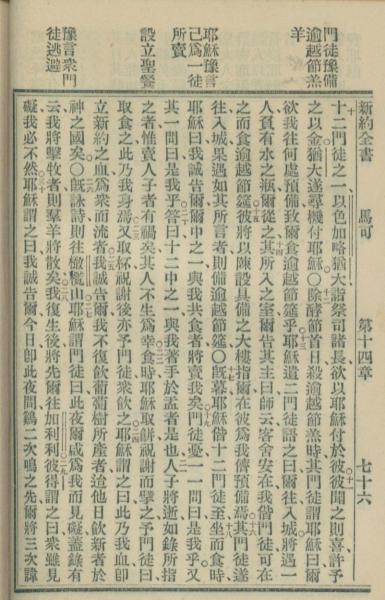 新約全書　馬可　第十四章　七十六
門徒豫備
逾越節羔
羊
耶穌豫言
己爲一徒
所賣
設立聖餐
豫言衆門
徒逃避
十二門徒之一以色加略猶大詣祭司諸長欲以耶穌付於彼彼聞之則喜許予
之以金猶大遂尋機付耶穌○除酵節首日殺逾越節羔時其門徒謂耶穌曰爾
欲我往何處預備致爾食逾越節筵乎耶穌遣二門徒語之曰爾往入城將遇一
人負有水之瓶爾從之其所入之室爾告其主曰師云客舍安在我偕門徒可在
之而食逾越節筵彼將以陳設具備之大樓指爾在彼爲我儕預備焉其門徒遂
往入城果遇如其所言者則備逾越節筵○旣暮耶穌偕十二門徒至坐而食時
耶穌曰我誠告爾爾中之一與我共食者將賣我矣門徒憂一一問曰是我乎又
其一問曰是我乎答曰十二中之一與我著手於盂者是也人子將逝如錄所指
之者惟賣人子者有禍矣其人不生爲幸食時耶穌取餅祝謝而擘之予門徒曰
取食之此乃我身焉又取杯祝謝後亦予門徒衆飲之耶穌謂之曰此乃我血卽
立新約之血爲衆而流者我誠告爾我不復飲葡萄樹所產者迨他日飲新者於
神之國矣○旣詠詩則往橄欖山耶穌謂門徒曰此夜爾咸爲我而見礙蓋錄有
云我將擊牧者則羣羊將散矣我復生後將先爾往加利利彼得謂之曰衆雖見
礙我必不然耶穌謂之曰我誠告爾今日卽此夜間鷄二次鳴之先爾將三次諱